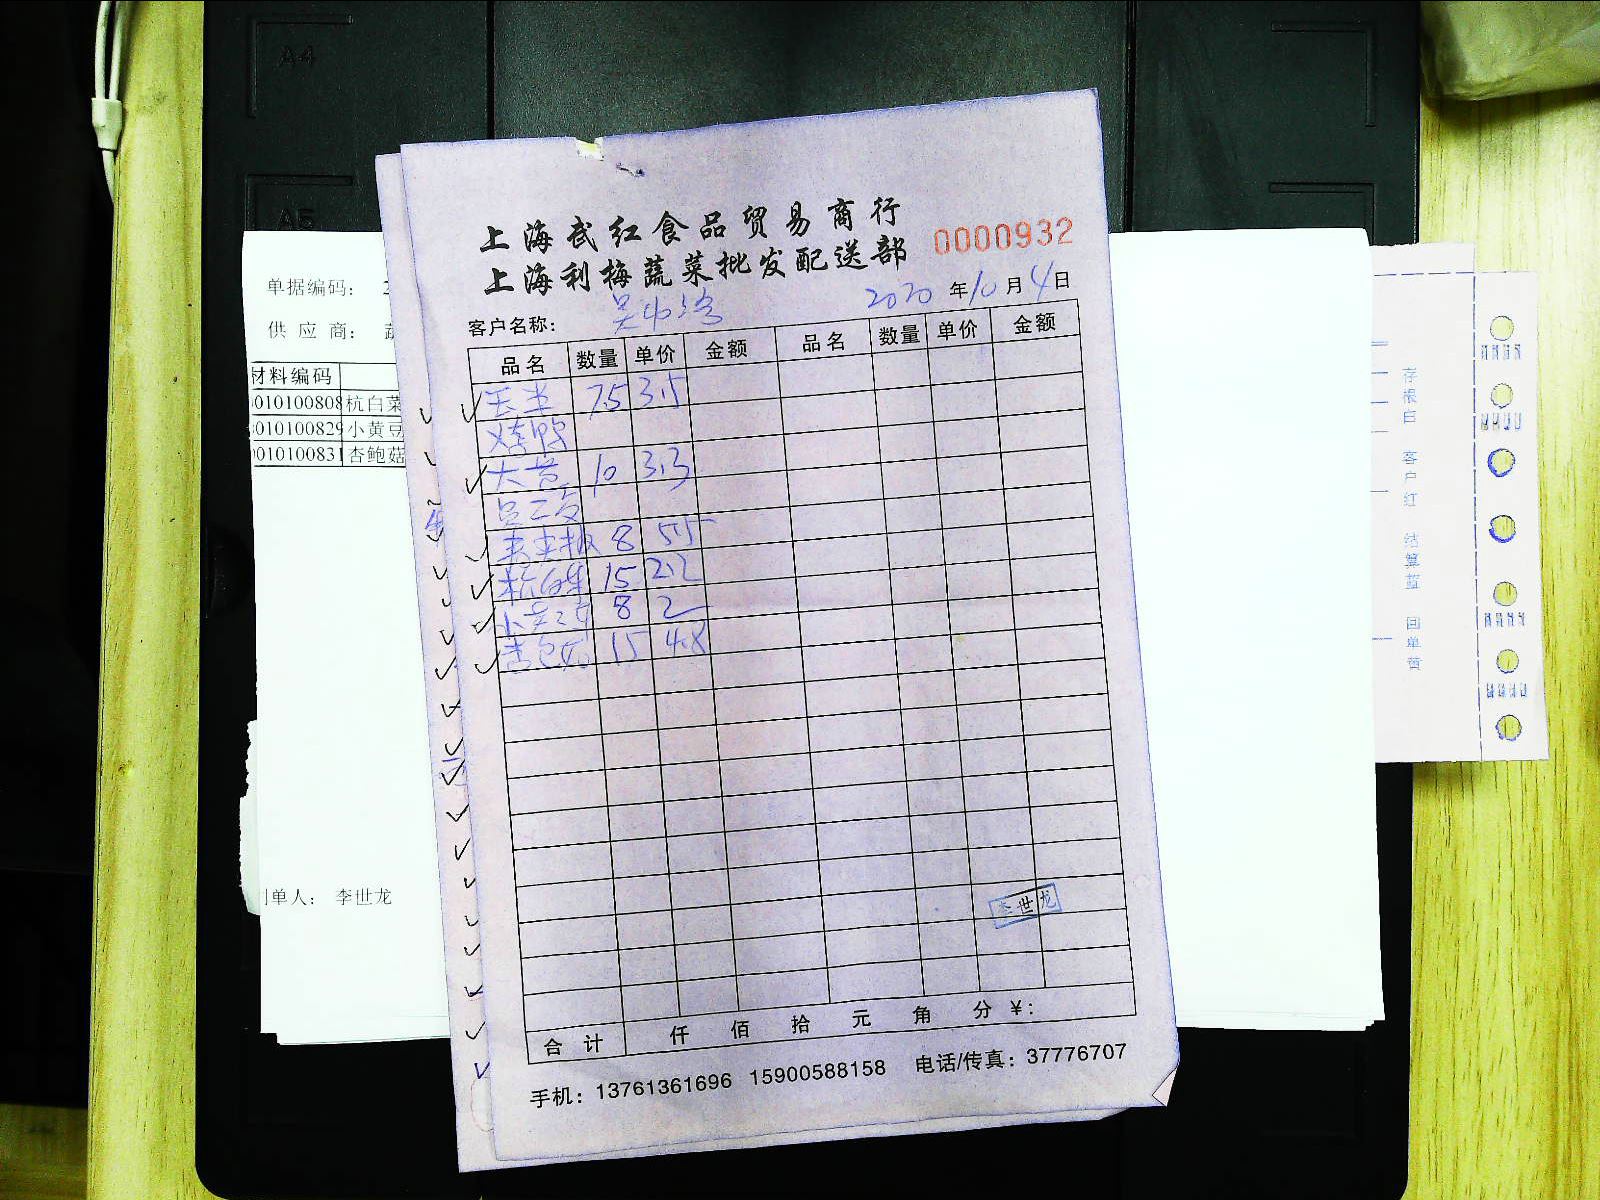 A4
A5
上海武红食品贸易商行
上海利梅蔬菜批发配送部
0000932
2020 年 10 月 4 日
客户名称:
品名 数量 单价 金额 品名 数量 单价 金额
75 3.5
大 10 3.3
8 5.5
杭白菜 15 2.2
小黄豆 8 2
杏包菇 15 4.8
李世龙
合计 仟 佰 拾 元 角 分 ¥:
手机: 13761361696 15900588158 电话/传真: 37776707
单据编码: 2
供应商:
材料编码
010100808 杭白菜
010100829 小黄豆
010100831 杏鲍菇
制单人: 李世龙
存根白 客户红 结算蓝 回单黄